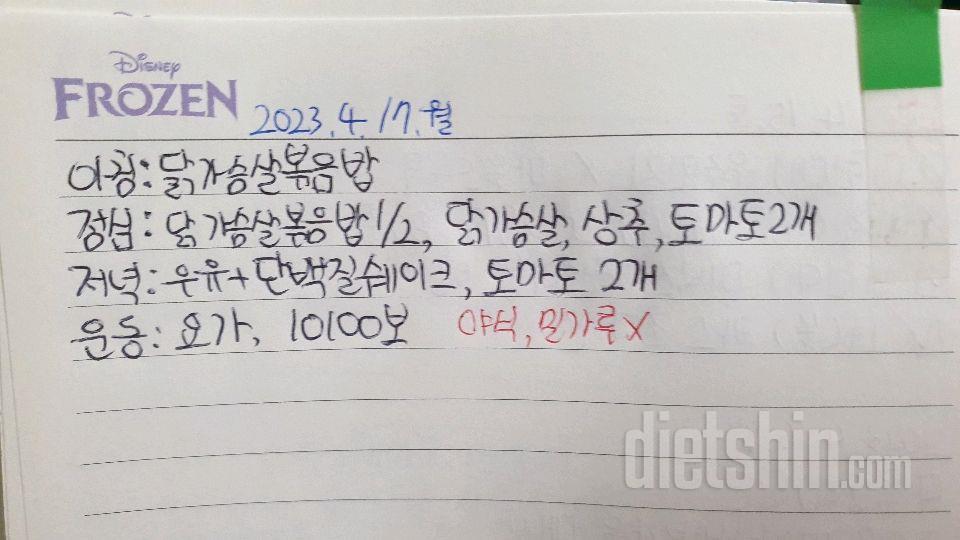 Disney
FROZEN
2023.4.17.월
아침: 닭가슴살볶음밥
점심: 닭가슴살볶음밥1/2, 닭가슴살, 상추, 토마토2개
저녁: 우유+단백질쉐이크, 토마토 2개
운동: 요가, 10100보 야식, 밀가루X
dietshin.com